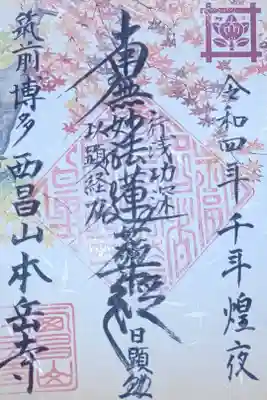 令和四年千年煌夜
南無妙法蓮華経
行浅功深
以顕経力
日顕
筑前博多 西昌山本岳寺